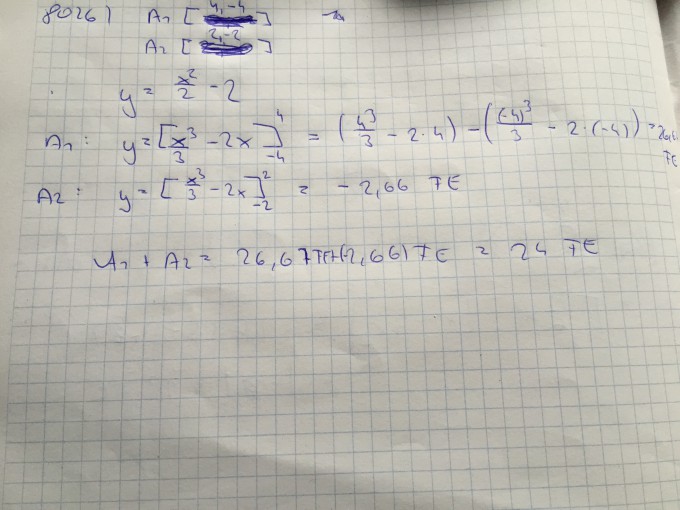 8026) A1 [4,-4]
A2 [2,-2]
y = x²/2 - 2
A1: y = [x³/3 - 2x]⁴₋₄ = (4³/3 - 2·4) - ((-4)³/3 - 2·(-4)) =
TE
A2: y = [x³/3 - 2x]²₋₂ = -2,66 TE
A1 + A2 = 26,67 TE+(-2,66) TE = 24 TE